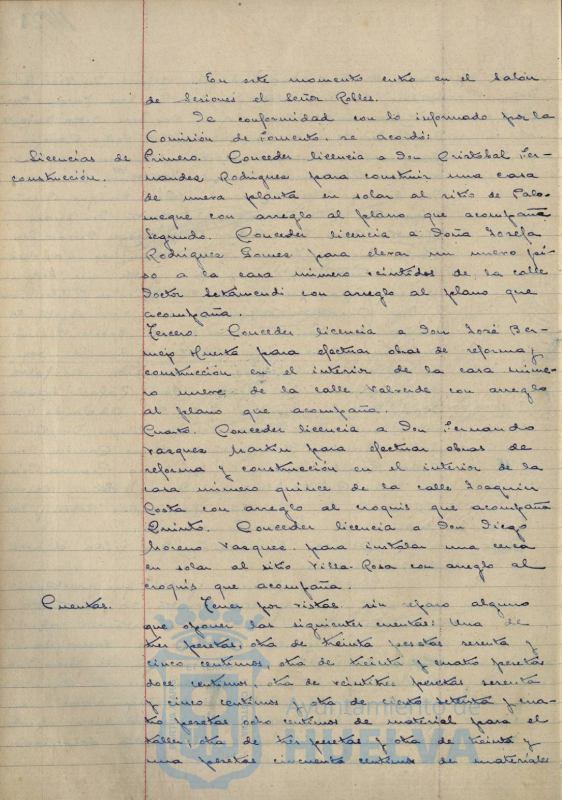 En este momento entró en el Salón
de Sesiones el Señor Robles.
De conformidad con lo informado por la
Comisión de Fomento, se acordó:
Licencias de
construcción.
Primero. Conceder licencia a Don Cristóbal Fer-
nandez Rodriguez para construir una casa
de nueva planta en solar al sitio de Palo-
meque con arreglo al plano que acompaña
Segundo. Conceder licencia a Doña Josefa
Rodriguez Gomez para elevar un nuevo pi-
so a la casa número veintidos de la calle
Doctor Letamendi con arreglo al plano que
acompaña.
Tercero. Conceder licencia a Don José Ber-
mejo Huerta para efectuar obras de reforma y
construcción en el interior de la casa núme-
ro nueve de la calle Valverde con arreglo
al plano que acompaña.
Cuarto. Conceder licencia a Don Fernando
Vazquez Martin para efectuar obras de
reforma y construcción en el interior de la
casa número quince de la calle Joaquin
Costa con arreglo al croquis que acompaña
Quinto. Conceder licencia a Don Diego
Moreno Vazquez para instalar una cerca
en solar al sitio Villa-Rosa con arreglo al
croquis que acompaña.
Cuentas.
Tener por vistas sin reparo alguno
que oponer las siguientes cuentas: Una de
tres pesetas, otra de treinta pesetas sesenta y
cinco centimos, otra de treinta y cuatro pesetas
doce centimos, otra de veintitres pesetas sesenta
y cinco centimos y otra de ciento setenta y cua-
tro pesetas ocho centimos de material para el
taller; otra de tres pesetas y otra de treinta y
una pesetas cincuenta centimos de materiales
Ayuntamiento de
HUELVA